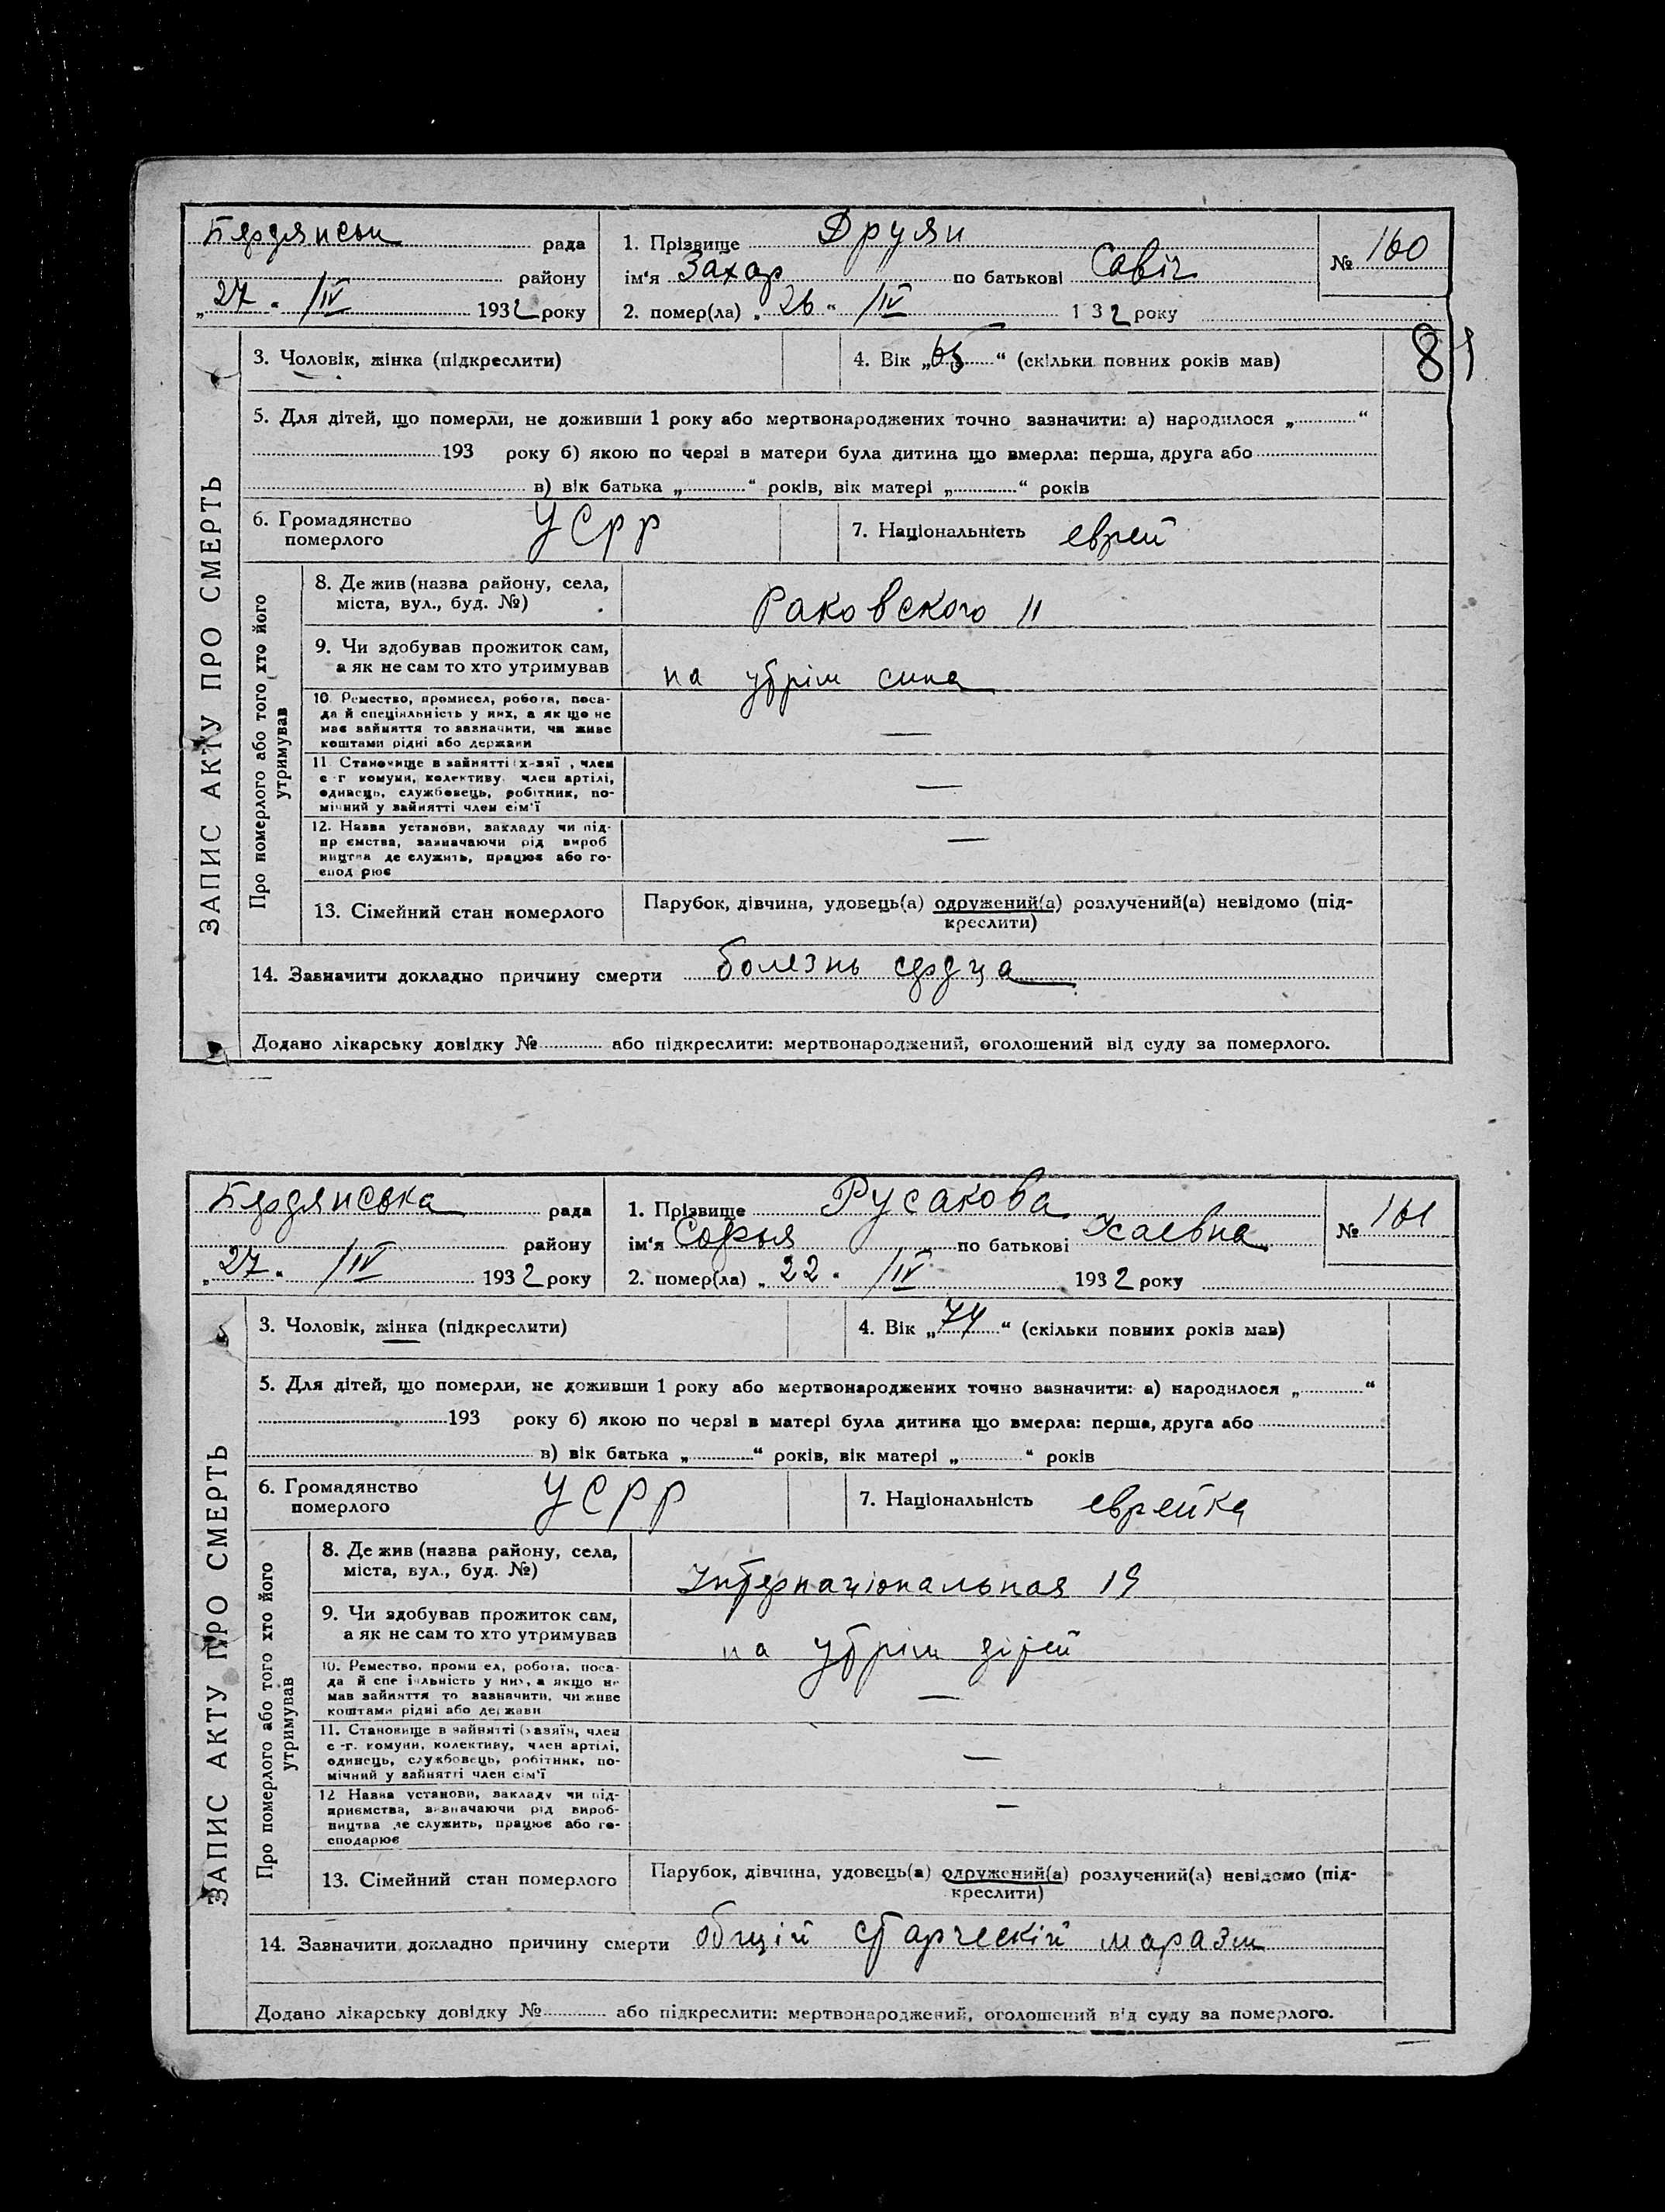 Бердянськ рада
району
„27“ /IV 1932 року
1. Прізвище Друян
ім'я Захар по батькові Савіч
2. помер(ла) „26“ /IV 1 32 року
№ 160
81
3. Чоловік, жінка (підкреслити)
4. Вік „65“ (скільки повних років мав)
5. Для дітей, що померли, не доживши 1 року або мертвонароджених точно зазначити: а) народилося „ “
193 року б) якою по черзі в матери була дитина що вмерла: перша, друга або
в) вік батька „ “ років, вік матері „ “ років
6. Громадянство
померлого
УСРР
7. Національність еврей
ЗАПИС АКТУ ПРО СМЕРТЬ
Про померлого або того хто його
утримував
8. Де жив (назва району, села,
міста, вул., буд. №)
Раковского 11
9. Чи здобував прожиток сам,
а як не сам то хто утримував
на утрім сина
10. Ремество, промисел, робота, поса-
да й спеціяльність у них, а як що не
має зайняття то зазначити, чи живе
коштами рідні або держави
—
11 Становище в зайнятті (х-зяї , член
с -г комуни, колективу, член артілі,
одинець, службовець, робітник, по-
мічний у зайнятті член сім'ї
—
12. Назва установи, закладу чи під-
пр ємства, зазначаючи рід вироб
ництва де служить, працює або го-
спод рює
—
13. Сімейний стан померлого
Парубок, дівчина, удовець(а) одружений(а) розлучений(а) невідомо (під-
креслити)
14. Зазначити докладно причину смерти болезнь сердца
Додано лікарську довідку № або підкреслити: мертвонароджений, оголошений від суду за померлого.
Бердянська рада
району
„27“ /IV 1932 року
1. Прізвище Русакова
ім'я Софья по батькові Ісаевна
2. помер(ла) „22“ /IV 1932 року
№ 161
3. Чоловік, жінка (підкреслити)
4. Вік „74“ (скільки повних років мав)
5. Для дітей, що померли, не доживши 1 року або мертвонароджених точно зазначити: а) народилося „ “
193 року б) якою по черзі в матері була дитина що вмерла: перша, друга або
в) вік батька „ “ років, вік матері „ “ років
6. Громадянство
померлого
УСРР
7. Національність еврейка
ЗАПИС АКТУ ПРО СМЕРТЬ
Про померлого або того хто його
утримував
8. Де жив (назва району, села,
міста, вул., буд. №)
Інтернаціональная 19
9. Чи здобував прожиток сам,
а як не сам то хто утримував
на утрім дітей
10. Ремество, проми ел, робота, поса-
да й спе іяльність у них, а якщо не
мав зайняття то зазначити, чи живе
коштами рідні або держави
—
11. Становище в зайнятті (хазяїн, член
с -г. комуни, колективу, член артілі,
одинець, службовець, робітник, по-
мічний у зайнятті член сім'ї
—
12 Назва установи, закладу чи під-
приємства, зазначаючи рід вироб-
ництва де служить, працює або го-
сподарює
—
13. Сімейний стан померлого
Парубок, дівчина, удовець(а) одружений(а) розлучений(а) невідомо (під-
креслити)
14. Зазначити докладно причину смерти общій старческій маразм
Додано лікарську довідку № або підкреслити: мертвонароджений, оголошений від суду за померлого.